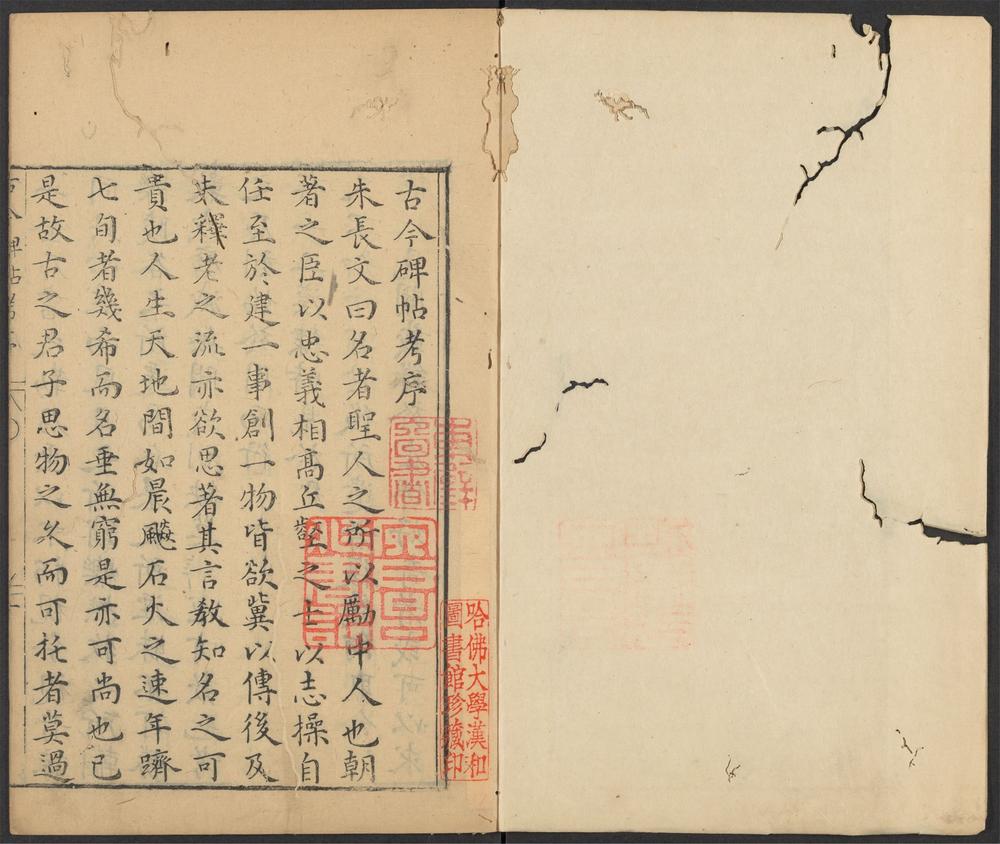 古今碑帖考序
朱長文曰名者聖人之所以厲中人也朝
著之臣以忠義相高丘壑之士以志操自
任至於建一事創一物皆欲冀以傳後及
夫釋老之流亦欲思著其言教知名之可
貴也人生天地間如晨飈石火之速年躋
七旬者幾希而名垂無窮是亦可尚也已
是故古之君子思物之久而可托者莫過
哈佛大學漢和
圖書館珍藏印